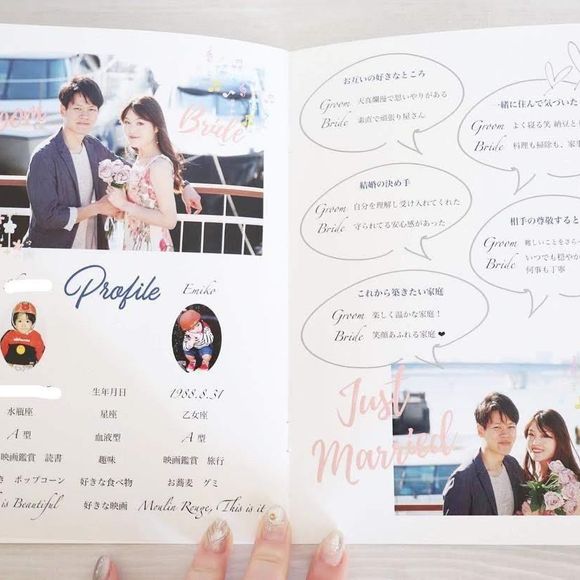 Bride
Profile
Emiko
生年月日
1988.8.31
水瓶座
星座
乙女座
A型
血液型
A型
映画鑑賞 読書
趣味
映画鑑賞 旅行
ポップコーン
好きな食べ物
お蕎麦 グミ
is Beautiful
好きな映画
Moulin Rouge, This is it
お互いの好きなところ
Groom 天真爛漫で思いやりがある
Bride 素直で頑張り屋さん
一緒に住んで気づいた
Groom よく寝る笑 納豆と
Bride 料理も掃除も、家事
結婚の決め手
Groom 自分を理解し受け入れてくれた
Bride 守られてる安心感があった
相手の尊敬すると
Groom 難しいことをさら
Bride いつでも穏やか
何事も丁寧
これから築きたい家庭
Groom 楽しく温かな家庭！
Bride 笑顔あふれる家庭❤
Just
Married